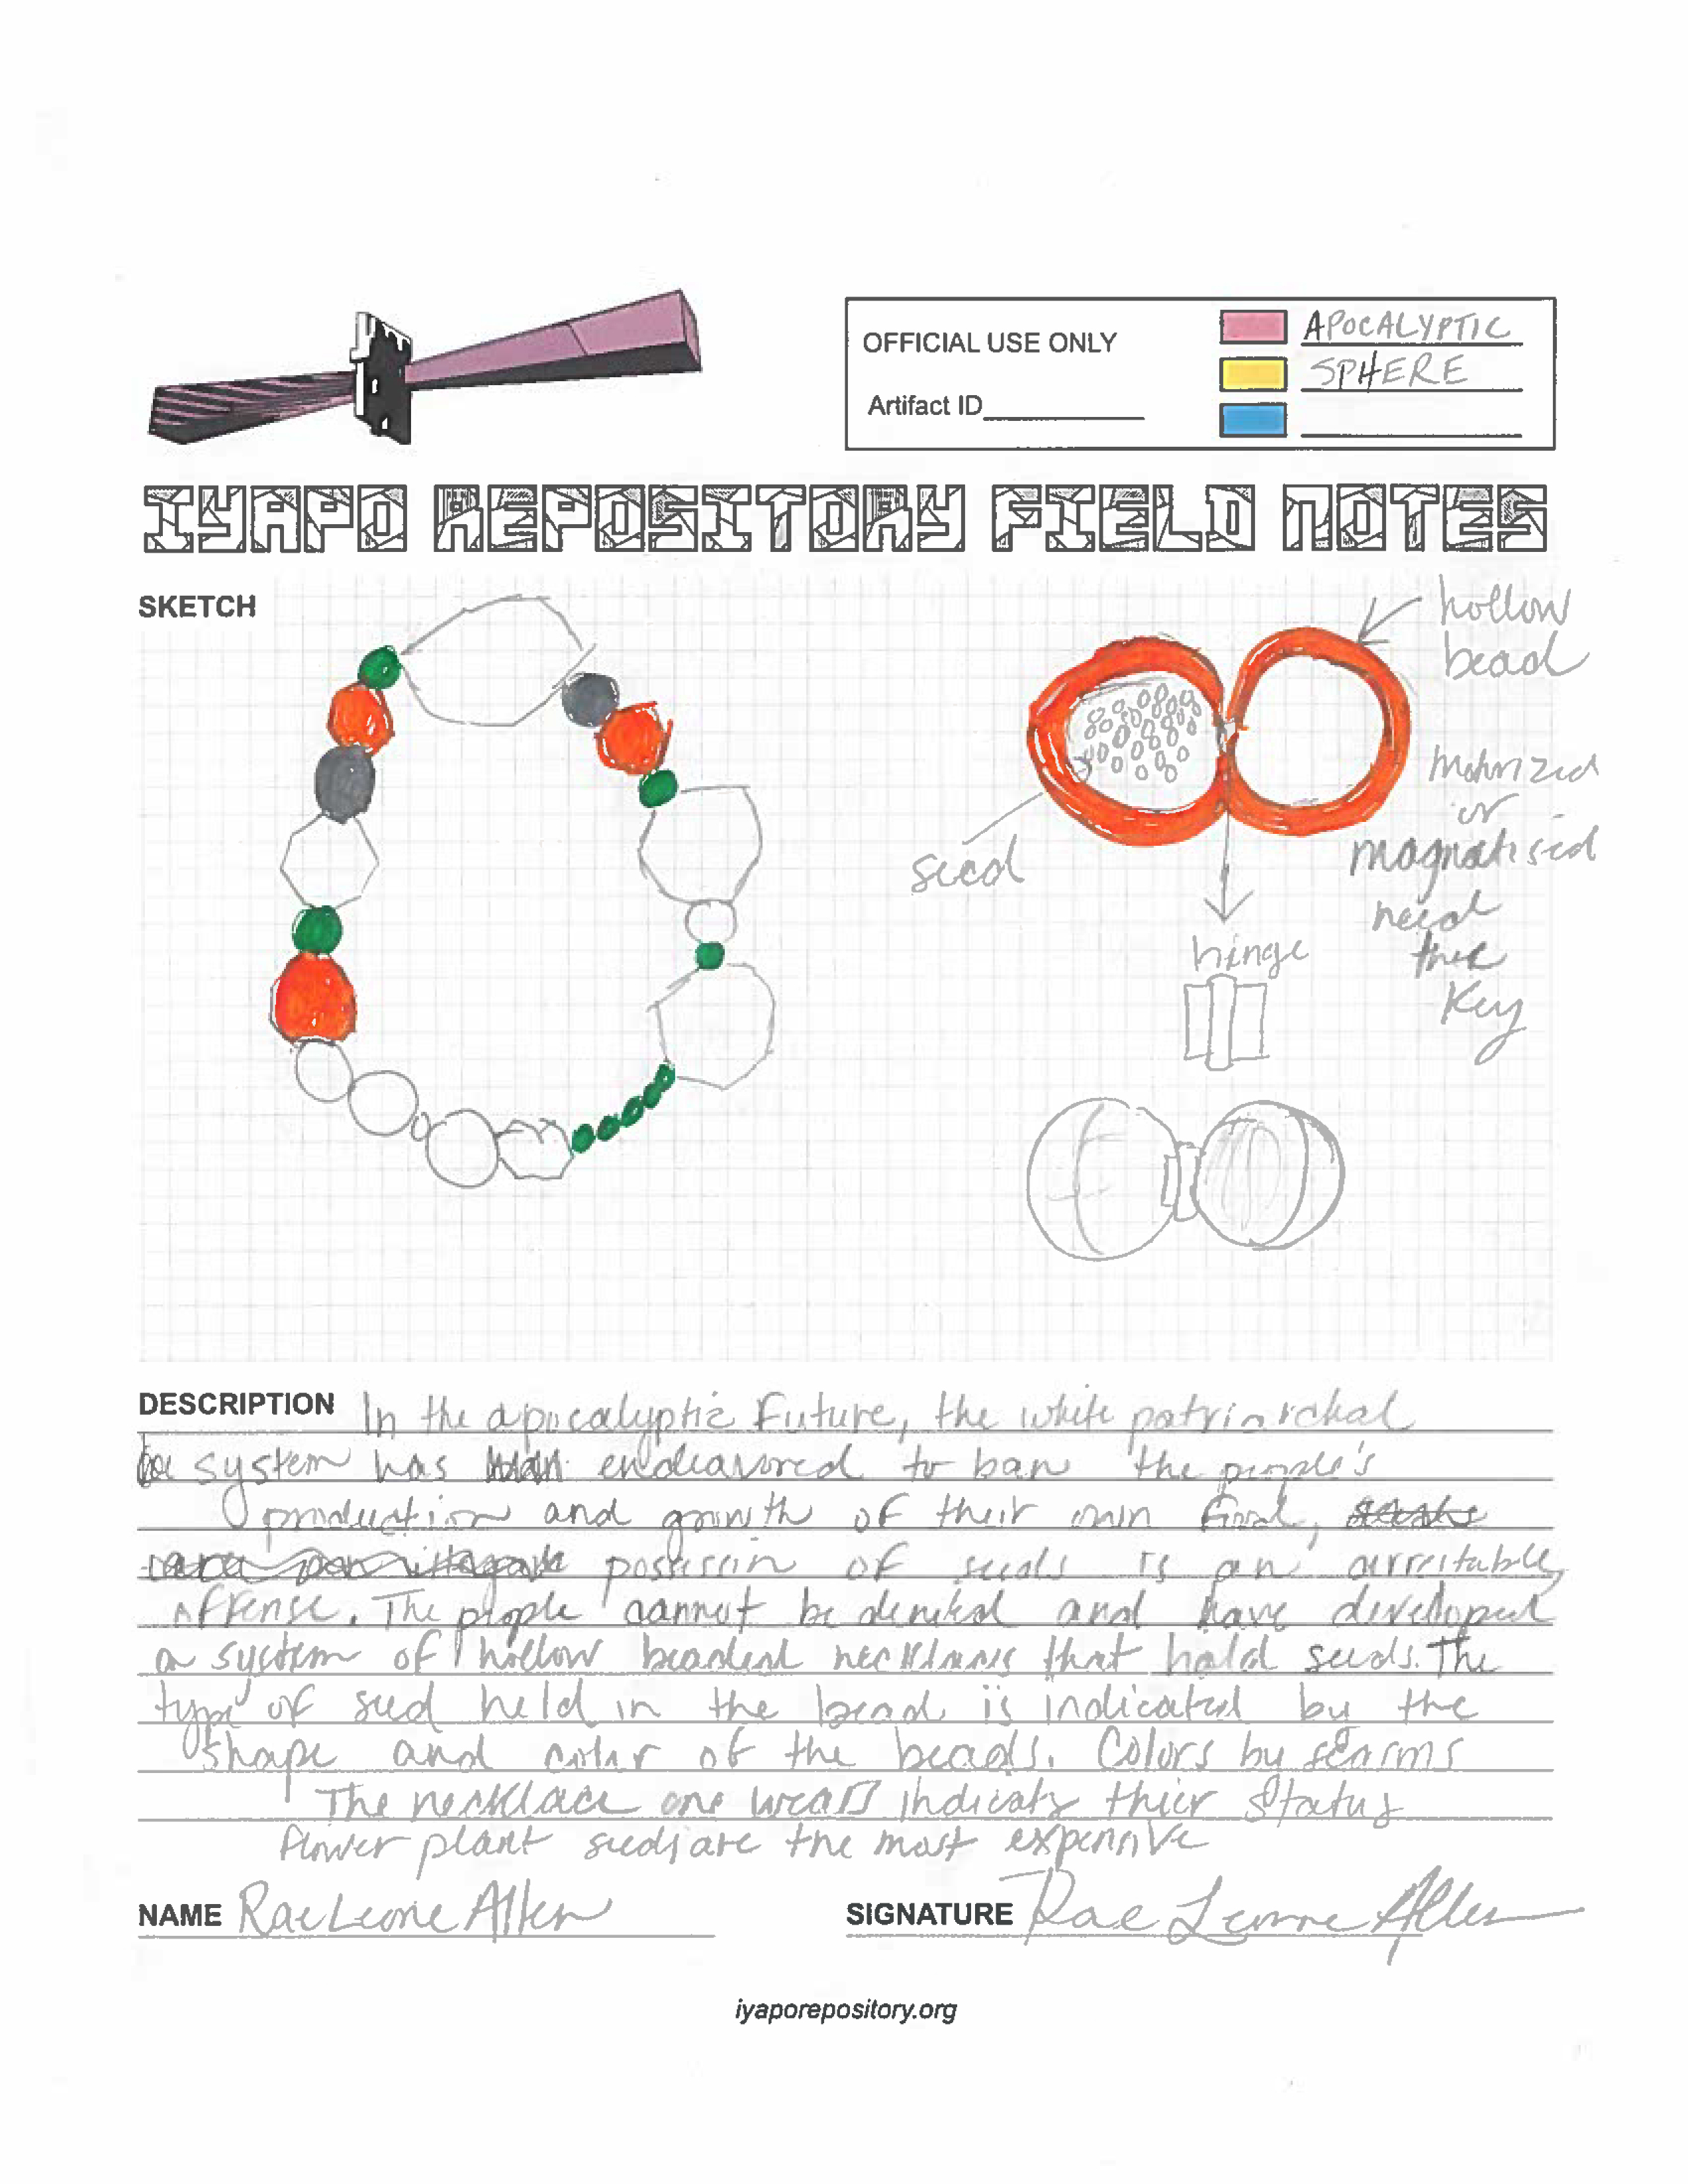 OFFICIAL USE ONLY
Artifact ID
APOCALYPTIC
SPHERE
IYAPO REPOSITORY FIELD NOTES
SKETCH
hollow
bead
seed
hinge
or
magnatised
need
Key
DESCRIPTION In the apocalyptic Future, the white patriarchal
system has endeavored to ban the people's
production and growth of their own food,
possession of seeds is an arrestable
offense. The people cannot be denied and have developed
a system of hollow beaded necklaces that hold seeds. The
type of seed held in the bead is indicated by the
shape and color of the beads. Colors by
The necklace one wears indicates thier status
flower plant seeds are the most expensive
NAME Rae Leone Allen
SIGNATURE Rae Leone Allen
iyaporepository.org